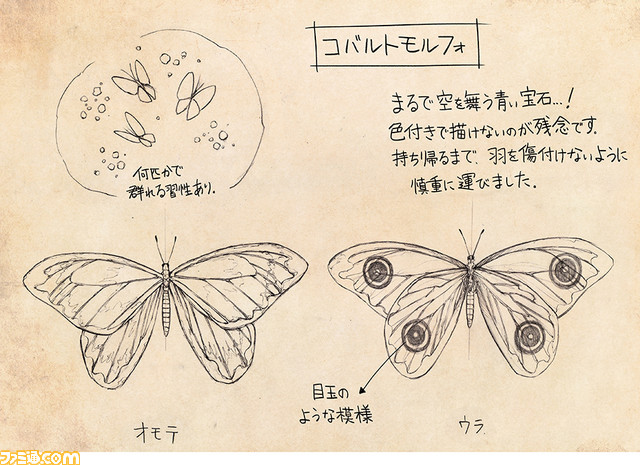 コバルトモルフォ
まるで空を舞う青い宝石…!
色付きで描けないのが残念です。
持ち帰るまで、羽を傷付けないように
慎重に運びました。
何匹かで
群れる習性あり。
目玉の
ような模様
オモテ
ウラ
ファミ通.com